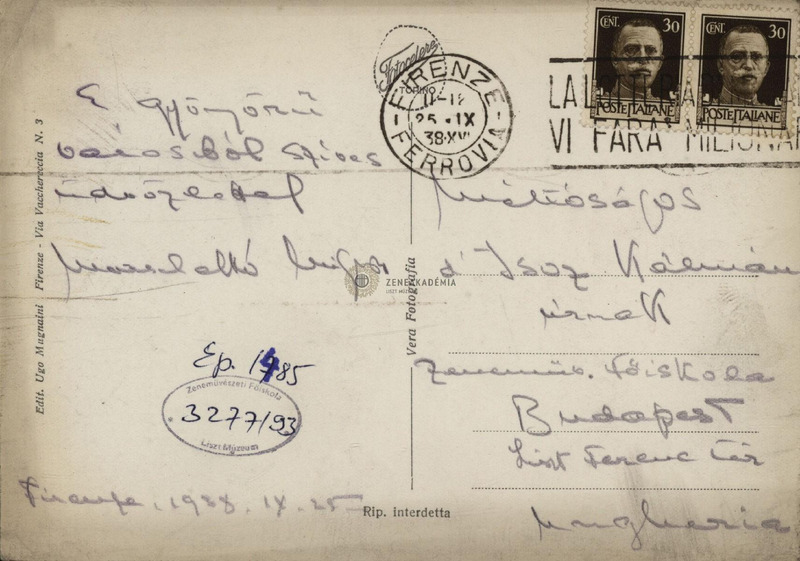 E gyönyörű
városból szíves
üdvözlettel
Firenze, 1938. IX. 25
Ep. 1485
Zeneművészeti Főiskola
3277/93
Liszt Múzeum
Edit. Ugo Magnaini Firenze - Via Vacchereccia N. 3
Vera Fotografia
Rip. interdetta
Fotocelere
TORINO
FIRENZE
25 · IX
38·XVI
FERROVIA
LA LOTTERIA
VI FARA' MILIONARI
CENT. 30
POSTE ITALIANE
CENT. 30
POSTE ITALIANE
ZENEAKADÉMIA
LISZT MÚZEUM
Méltóságos
d' Isoz Kálmán
úrnak
Zeneműv. Főiskola
Budapest
Liszt Ferenc tér
Ungheria